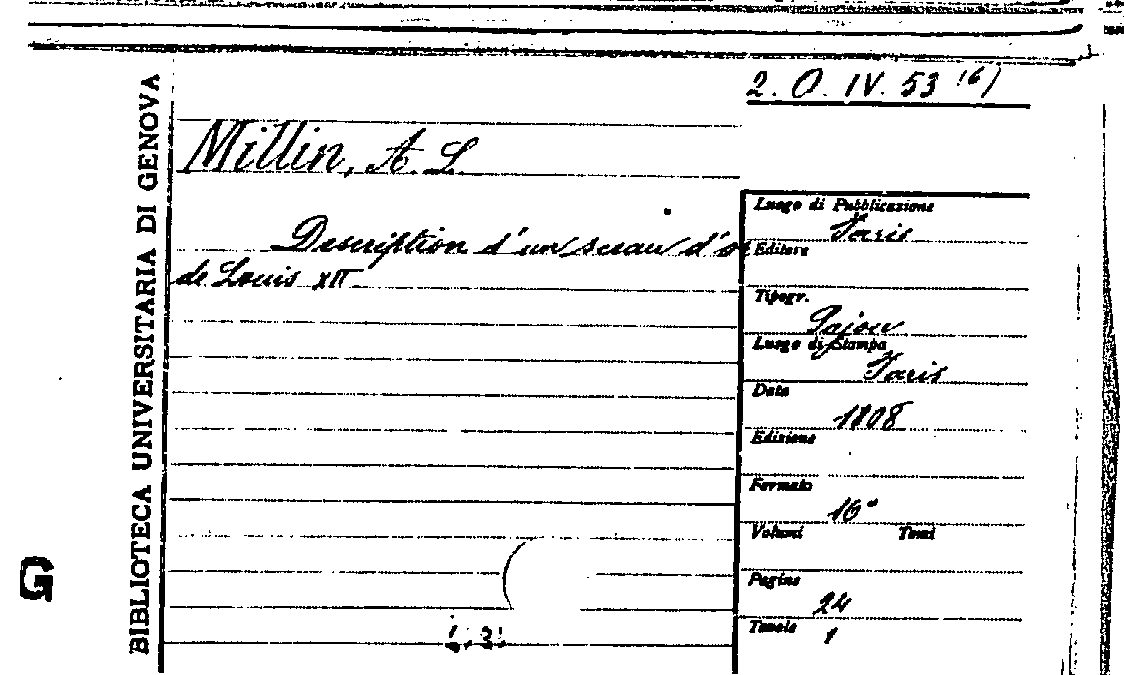 2. O. IV. 53 (6)
BIBLIOTECA UNIVERSITARIA DI GENOVA
Millin, A. L.
Description d'un sceau d'or
de Louis XII
Luogo di Pubblicazione
Paris
Editore
Tipogr.
Pajou
Luogo di Stampa
Paris
Data
1808
Edizione
Formato
16°
Volumi Tomi
Pagine
24
Tavole
1
G